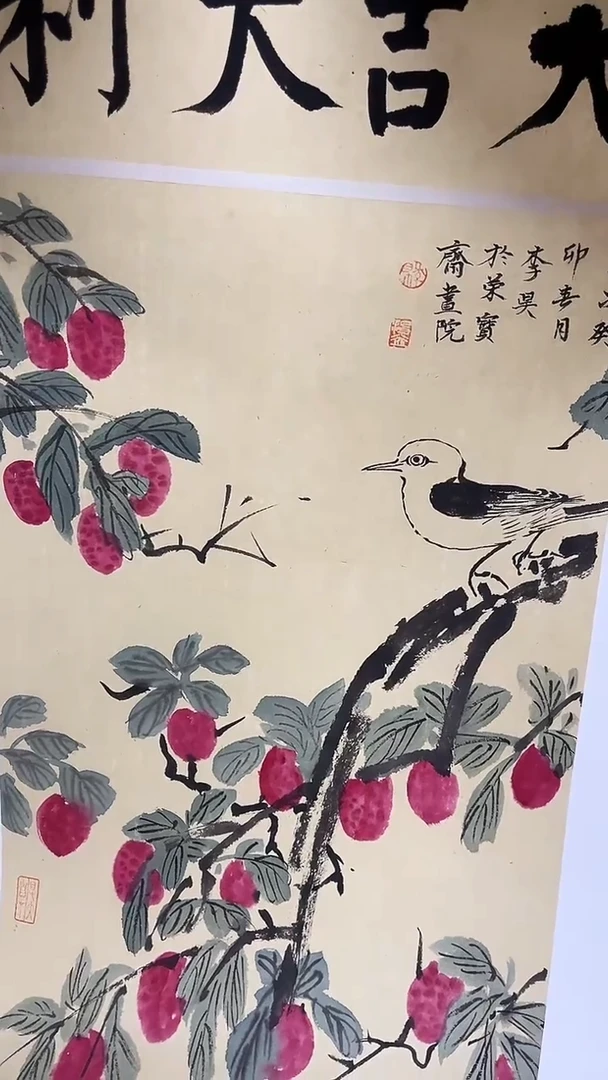 大吉大利
癸
卯春月
李昊
於荣寶
齋畫院